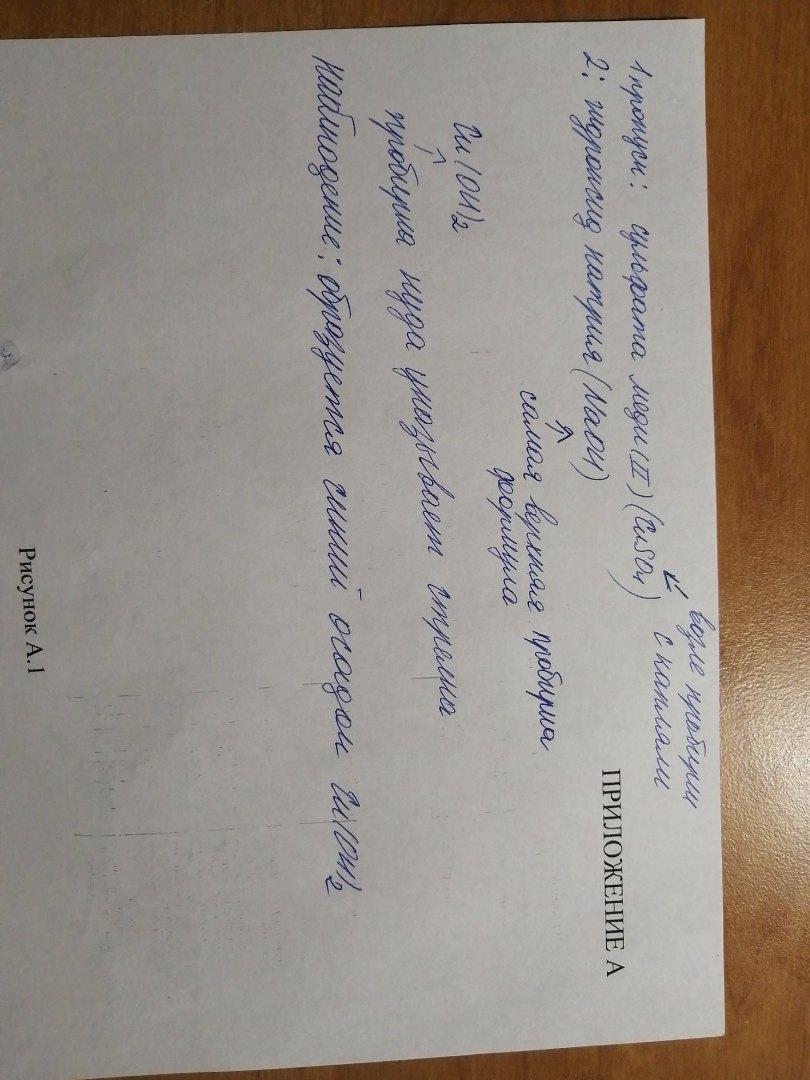 1 пропуск: сульфата меди (II) (CuSO4)
возле пробирки
с каплями
2: гидроксид натрия (NaOH)
ПРИЛОЖЕНИЕ А
самая верхняя пробирка
формула
Cu(OH)2
пробирка куда указывает стрелка
наблюдение: образуется синий осадок Cu(OH)2
Рисунок А.1